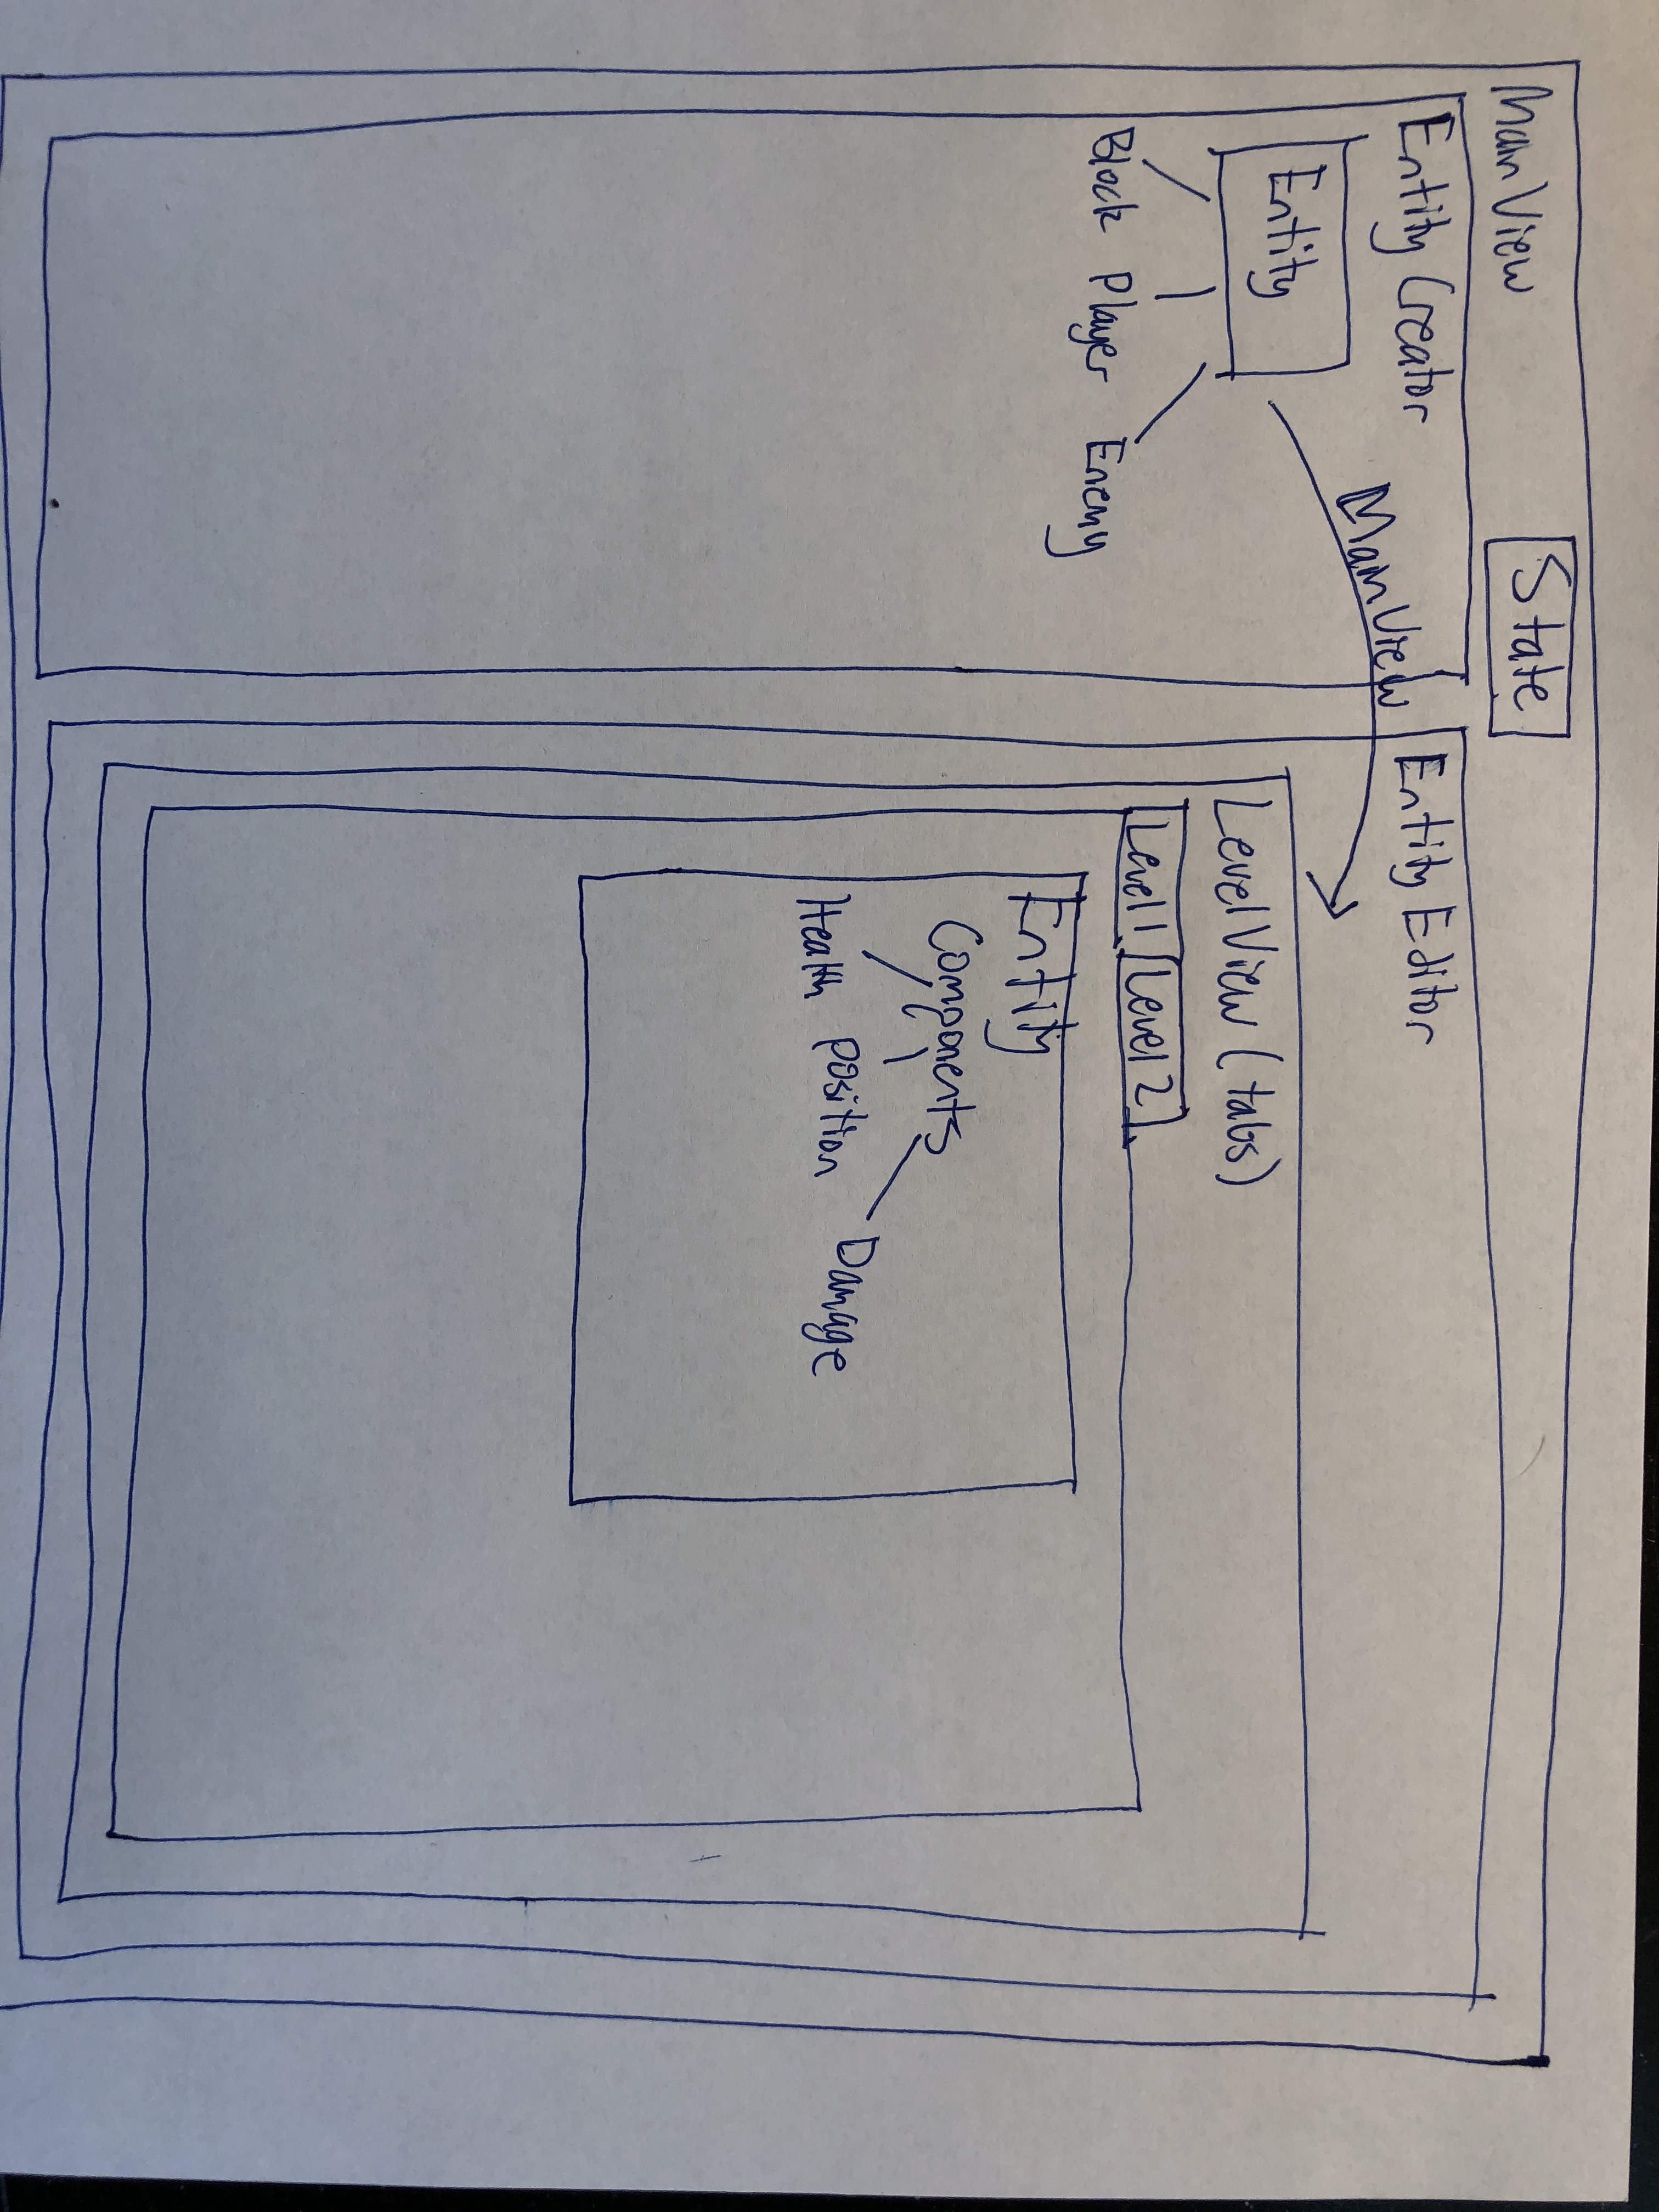 Main View
State
Entity Creator
Main View
Entity
Block Player Enemy
Entity Editor
Level View (tabs)
Level 1 Level 2
Entity
Components
Health position Damage